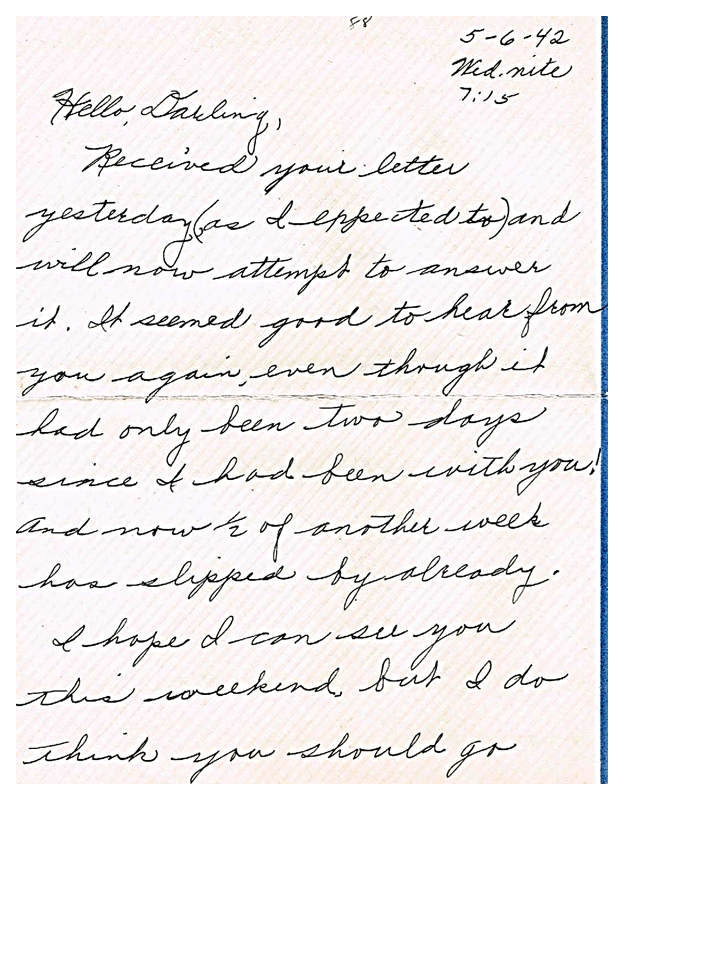 88
5-6-42
Wed. nite
7:15
Hello, Darling,
Received your letter
yesterday (as I expected to) and
will now attempt to answer
it. It seemed good to hear from
you again, even though it
had only been two days
since I had been with you!
And now 1/2 of another week
has slipped by already.
I hope I can see you
this weekend, but I do
think you should go